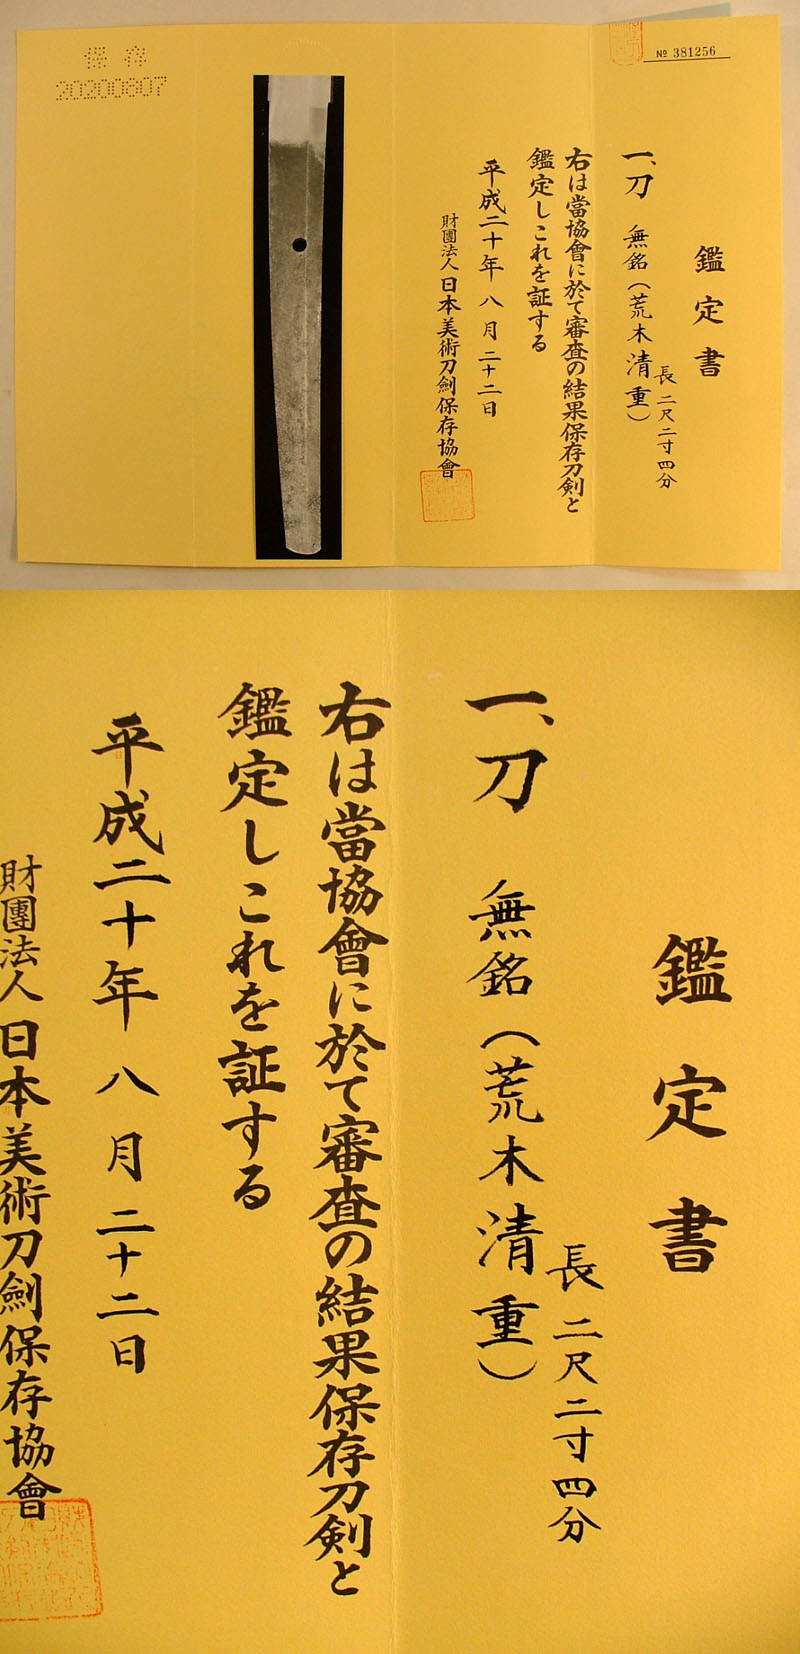 保存
20200807
№ 381256
鑑定書
一、刀 無銘（荒木清重）
長二尺二寸四分
右は當協會に於て審査の結果保存刀剣と
鑑定しこれを証する
平成二十年八月二十二日
財團法人日本美術刀劍保存協會
鑑定書
一、刀 無銘（荒木清重）
長二尺二寸四分
右は當協會に於て審査の結果保存刀剣と
鑑定しこれを証する
平成二十年八月二十二日
財團法人日本美術刀劍保存協會